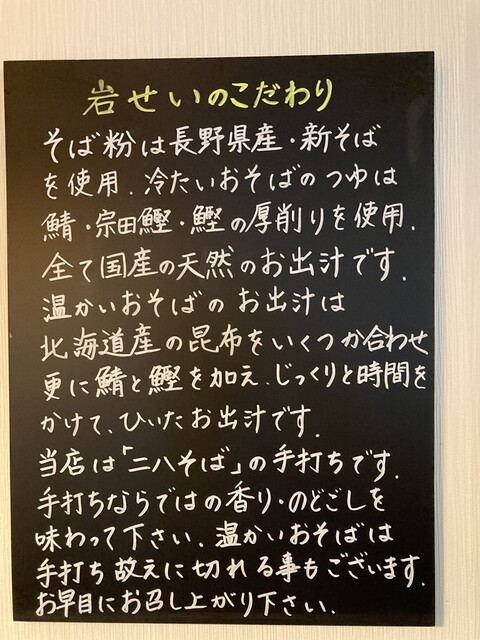 岩せいのこだわり
そば粉は長野県産・新そば
を使用．冷たいおそばのつゆは
鯖・宗田鰹・鰹の厚削りを使用．
全て国産の天然のお出汁です．
温かいおそばのお出汁は
北海道産の昆布をいくつか合わせ
更に鯖と鰹を加え、じっくりと時間を
かけて、ひいたお出汁です．
当店は「二八そば」の手打ちです．
手打ちならではの香り・のどごしを
味わって下さい．温かいおそばは
手打ち故えに切れる事もございます．
お早目にお召し上がり下さい．